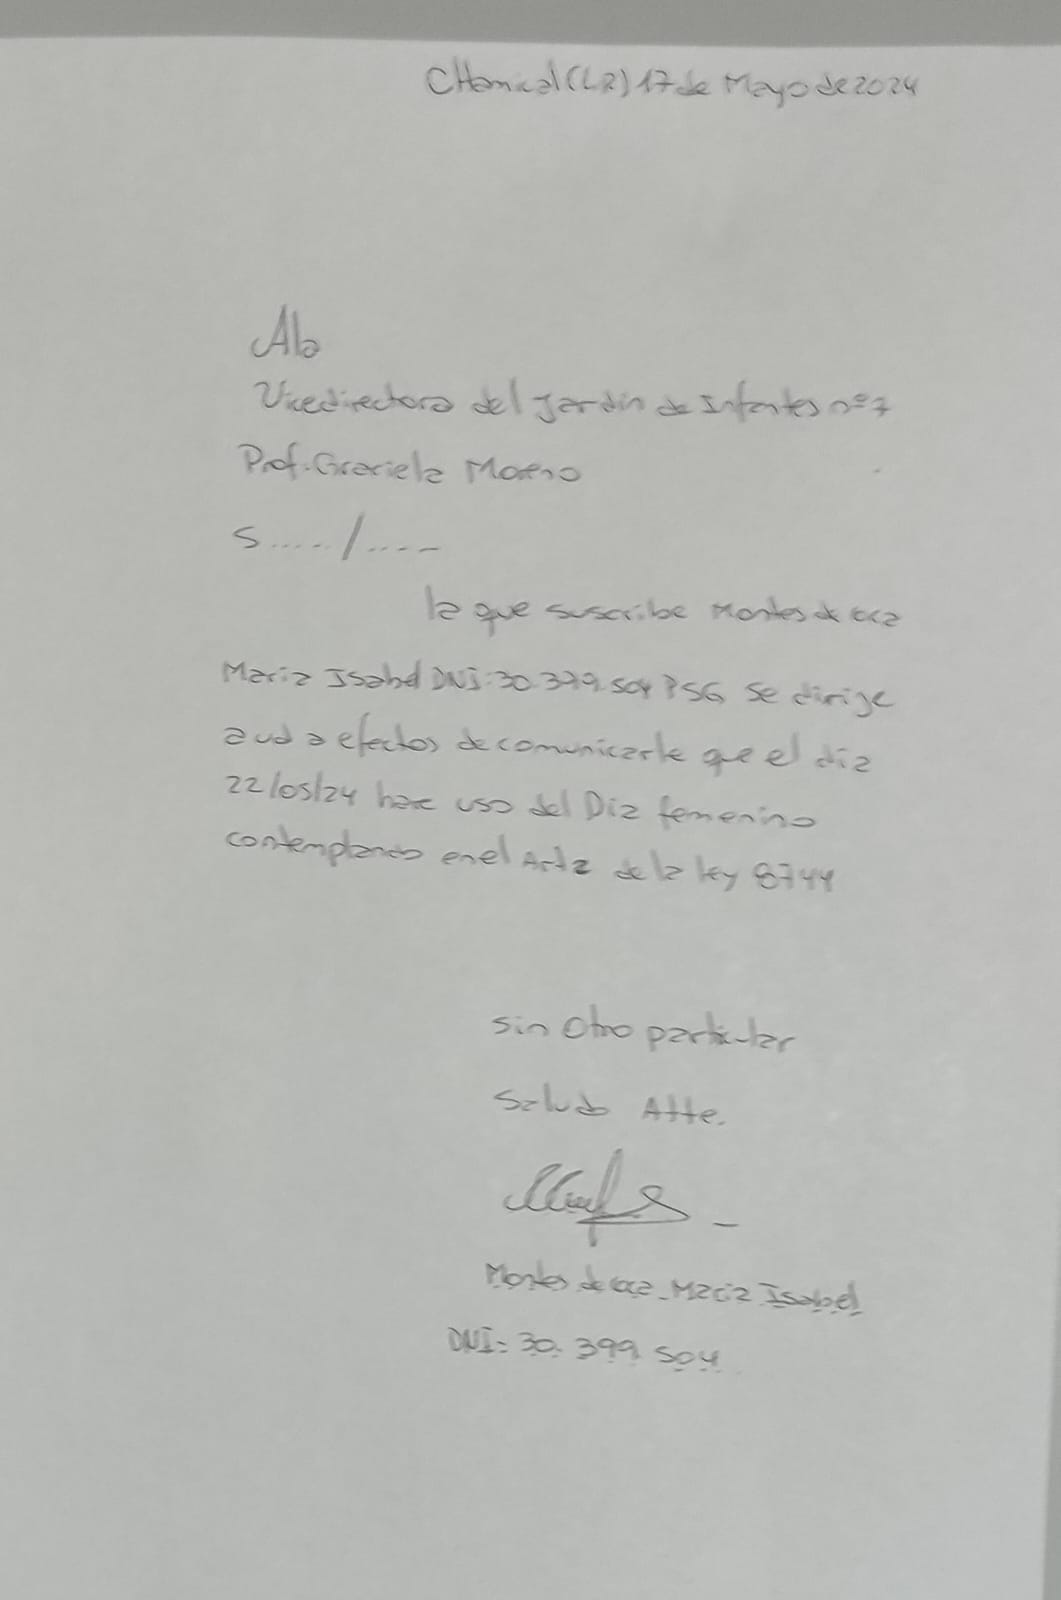 CHamical(LR) 17 de Mayo de 2024
A la
Vicedirectora del Jardin de Infantes nº 7
Prof. Graciela Moreno
S...../.....
la que suscribe Montes de oca
Maria Isabel DNI: 30.399.504 PSG se dirige
a ud a efectos de comunicarle que el dia
22/05/24 hare uso del Dia femenino
contemplando en el Art 2 de la ley 8744
sin Otro particular
Saludo Atte.
Montes de oca Maria Isabel
DNI: 30.399.504